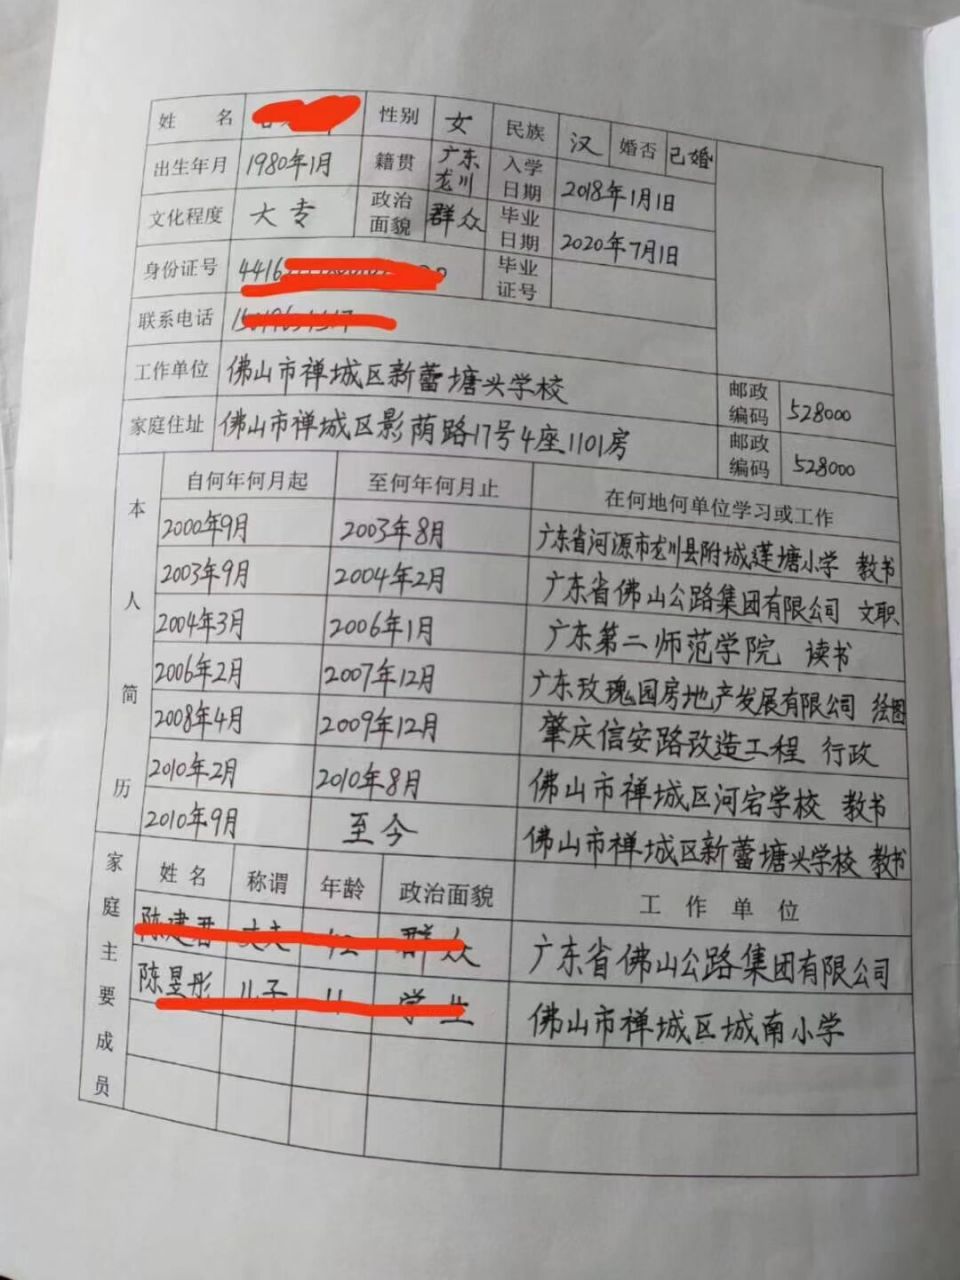 姓 名 性别 女 民族 汉 婚否 已婚
出生年月 1980年1月 籍贯 广东龙川 入学日期 2018年1月1日
文化程度 大专 政治面貌 群众 毕业日期 2020年7月1日
身份证号 毕业证号
联系电话
工作单位 佛山市禅城区新蕾塘头学校 邮政编码 528000
家庭住址 佛山市禅城区影荫路17号4座1101房 邮政编码 528000
本人简历
自何年何月起 至何年何月止 在何地何单位学习或工作
2000年9月 2003年8月 广东省河源市龙川县附城莲塘小学 教书
2003年9月 2004年2月 广东省佛山公路集团有限公司 文职
2004年3月 2006年1月 广东第二师范学院 读书
2006年2月 2007年12月 广东玫瑰园房地产发展有限公司 绘图
2008年4月 2009年12月 肇庆信安路改造工程 行政
2010年2月 2010年8月 佛山市禅城区河宕学校 教书
2010年9月 至今 佛山市禅城区新蕾塘头学校 教书
家庭主要成员
姓名 称谓 年龄 政治面貌 工作单位
群众 广东省佛山公路集团有限公司
学生 佛山市禅城区城南小学